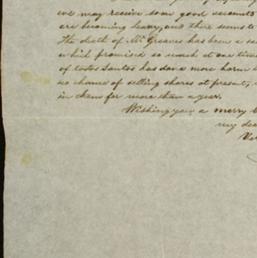 we may receive some good accounts
are becoming heavy, and there seems to
The death of Mr Greaves has been a
which promised so much at one time
of todos Santos has done more harm
no chance of selling shares at present,
in them for more than a year.
Wishing you a merry
my dear